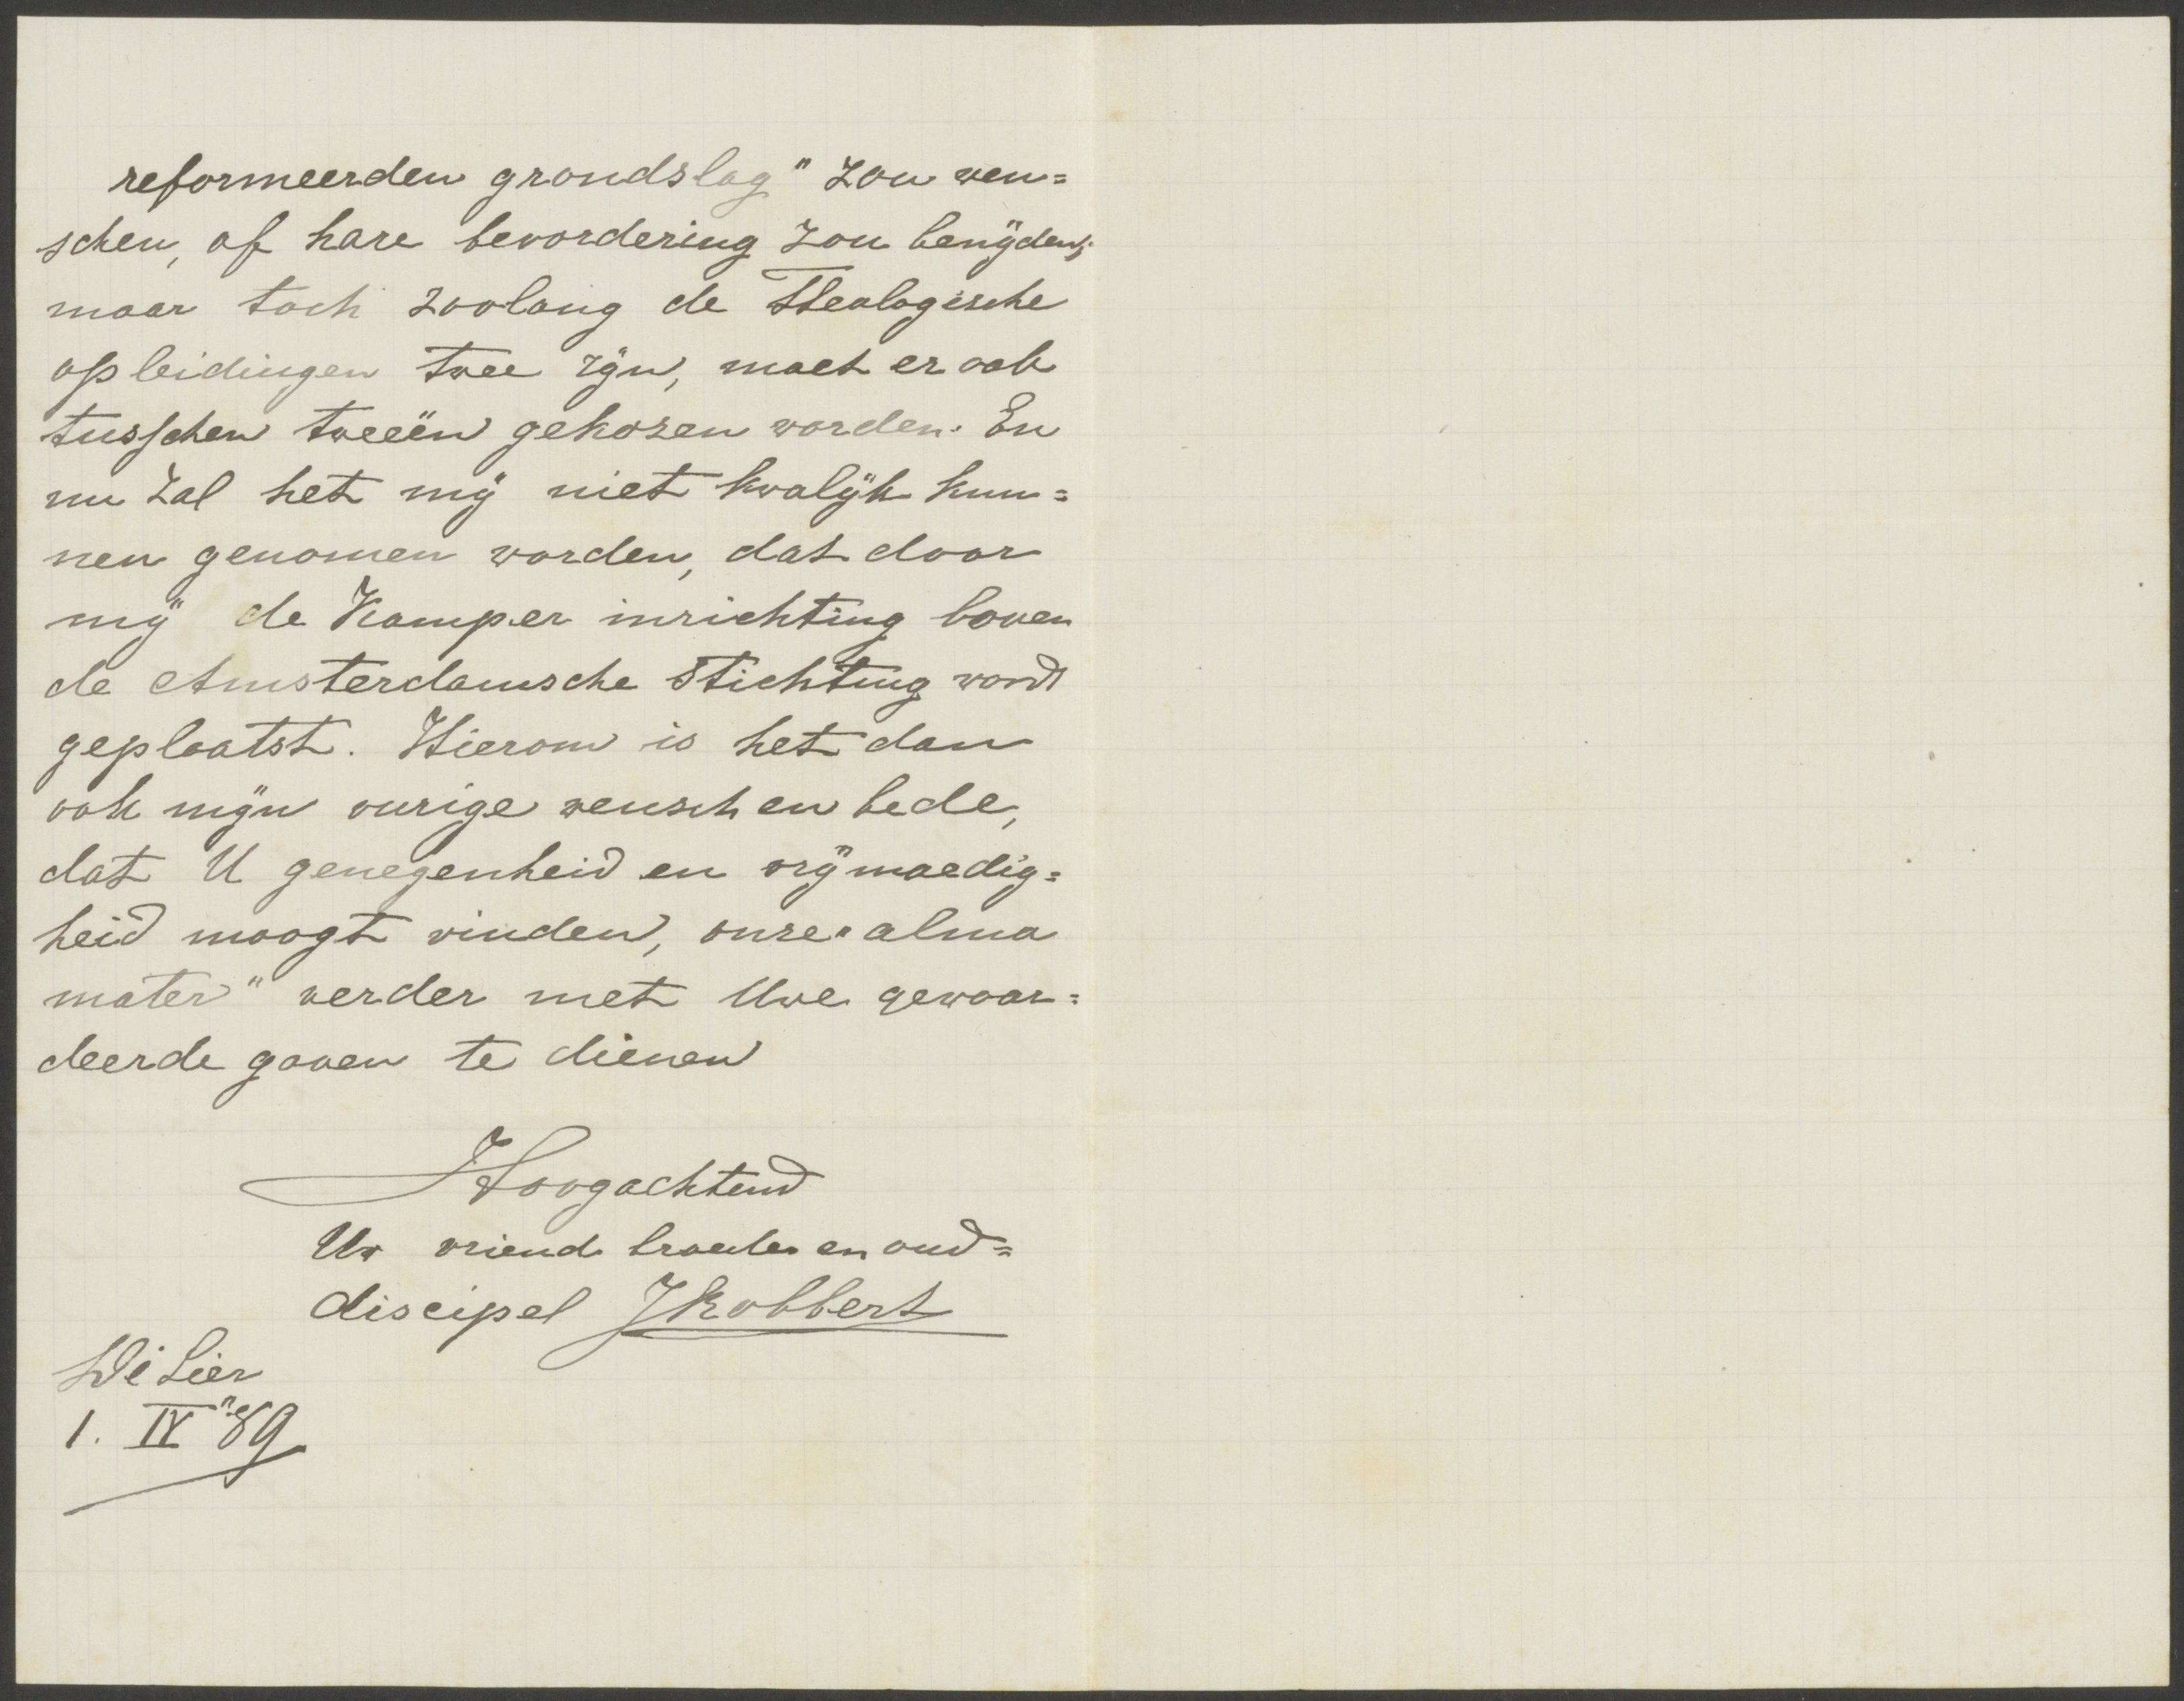 reformeerden grondslag" zou wen=
schen, of hare bevordering zou benijden;
maar toch zoolang de Theologische
opleidingen twee zijn, moet er ook
tusschen tweeën gekozen worden. En
nu zal het mij niet kwalijk kun=
nen genomen worden, dat door
mij de Kamper inrichting boven
de Amsterdamsche Stichting wordt
geplaatst. Hierom is het dan
ook mijn vurige wensch en bede,
dat U genegenheid en vrijmoedig=
heid moogt vinden, onze "alma
mater" verder met Uwe gewaar=
deerde gaven te dienen
Hoogachtend
Uw vriend broeder en oud=
discipel JRobbert
De Lier
1. IV "89